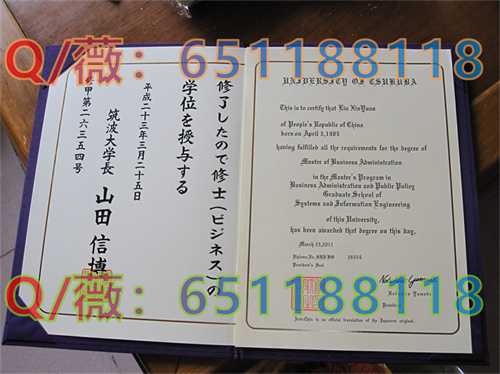 Q/薇：651188118
修了したので修士（ビジネス）の
学位を授与する
平成二十三年三月二十五日
筑波大学長 山田信博
甲第二六三五四号
UNIVERSITY OF TSUKUBA
This is to certify that Liu XinYuan
of People's Republic of China
born on April 3,1985
having fulfilled all the requirements for the degree of
Master of Business Administration
in the Master's Program in
Business Administration and Public Policy
Graduate School of
Systems and Information Engineering
of this University,
has been awarded that degree on this day,
March 25,2011
Diploma No. 26354
President's Seal
Nobuhiro Yamada
President
Note:This is an official translation of the Japanese original.
Q/薇：651188118